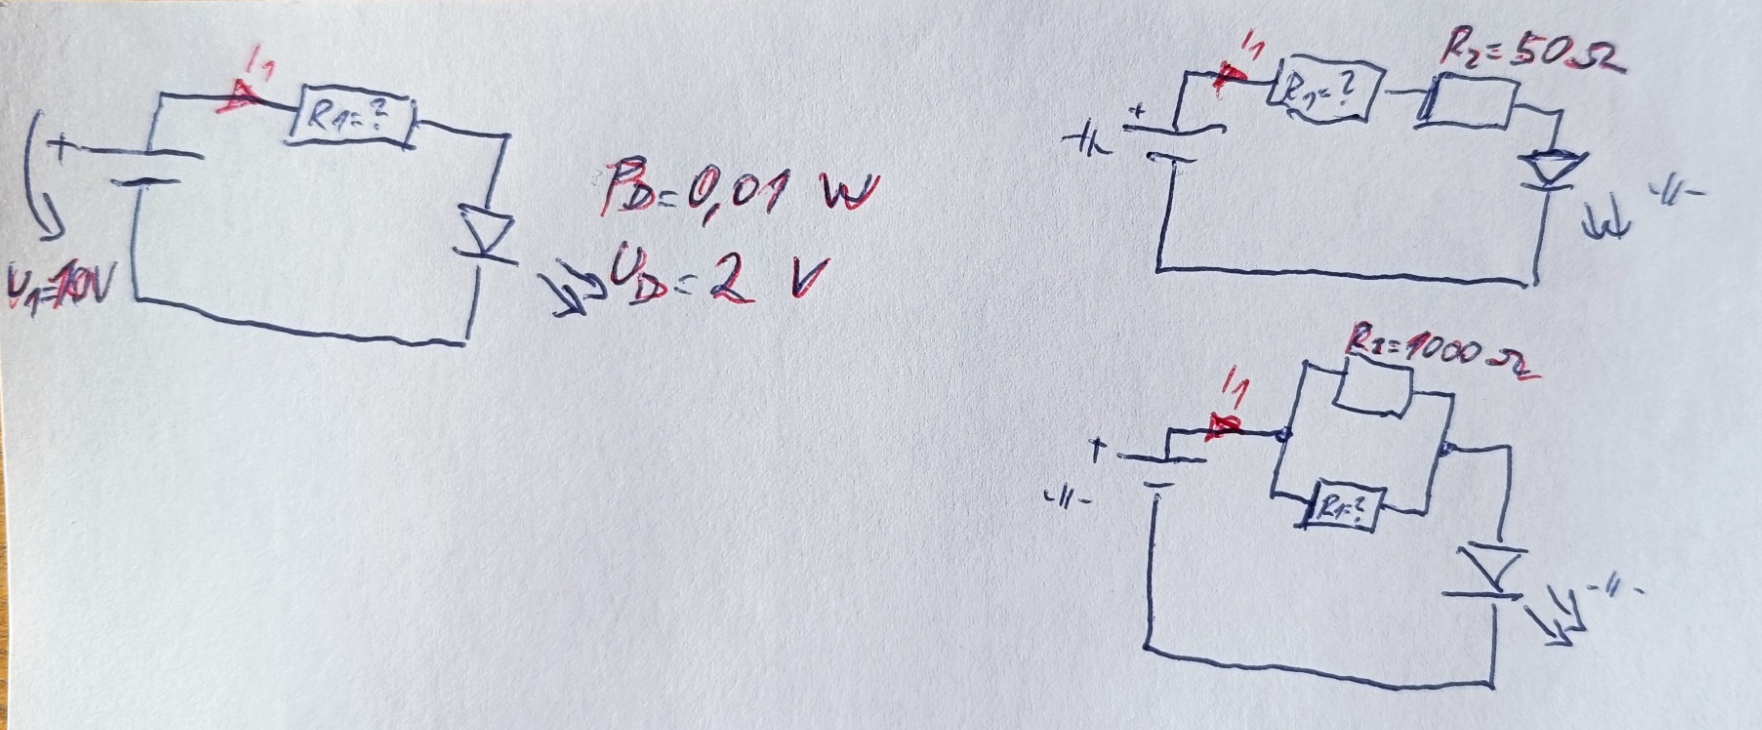 I₁
R₁=?
+
U₁=10V
P_D=0,01 W
U_D=2 V
I₁
R₂=50Ω
R₁=?
+
-||-
-||-
R₂=1000Ω
I₁
+
-||-
R₁=?
-||-